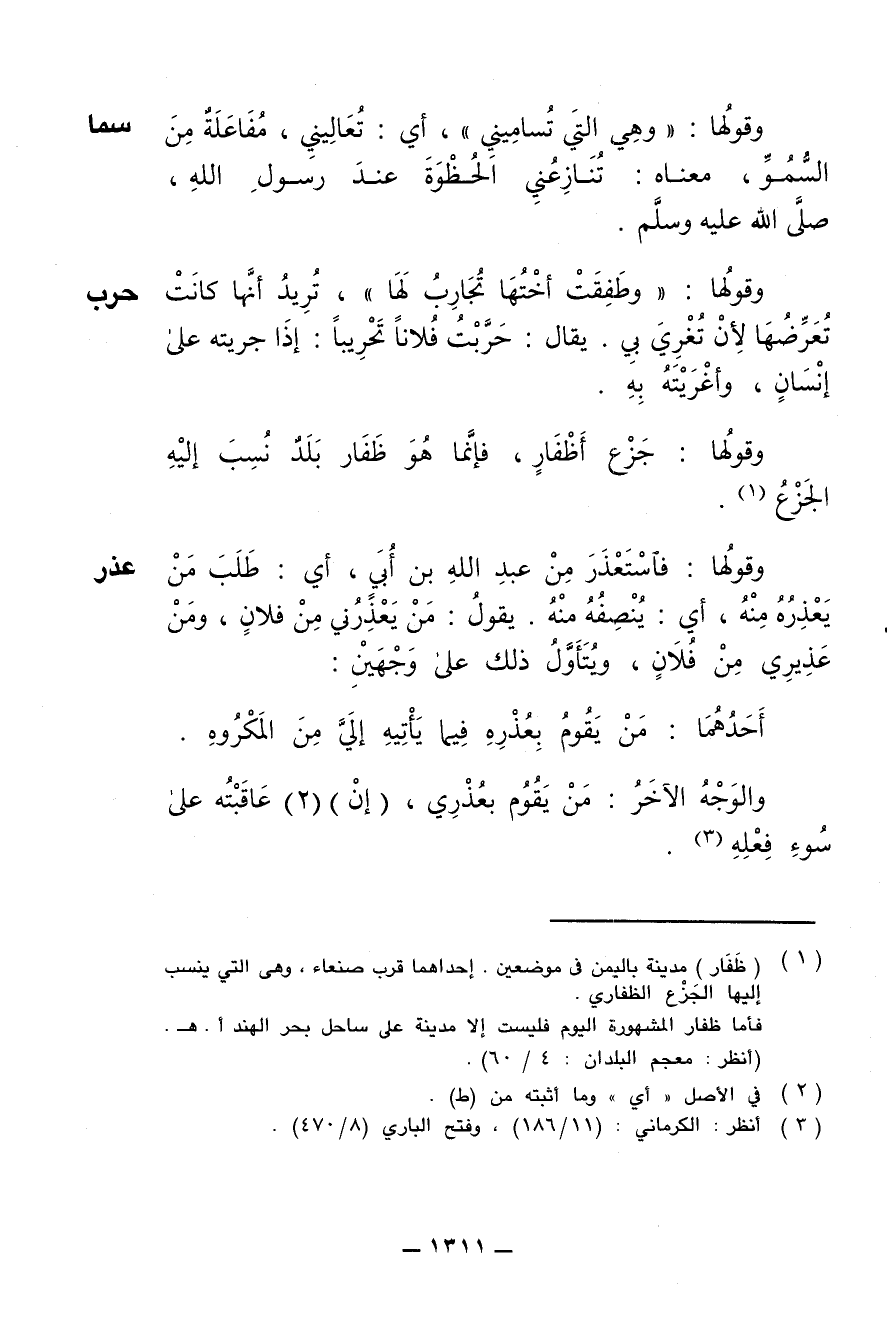 وقولُها : « وهِي التَي تُسامِيني » ، أي : تُعَالِيني ، مُفَاعَلَةٌ مِنَ سما
السُّمُوِّ ، معنـاه : تُنَـازِعُني الحُـظْوَةَ عنـدَ رسـولِ اللهِ ،
صلَّى الله عليه وسلَّم .
وقولُها : « وطَفِقَتْ أخْتُهَا تُحَارِبُ لَهَا » ، تُرِيدُ أنَّها كانَتْ حرب
تُعَرِّضُهَا لِأنْ تُغْرِيَ بي . يقال : حَرَّبْتُ فُلاناً تَحْرِيباً : إذَا جريته على
إنْسَانٍ ، وأغْرَيْتَهُ بِهِ .
وقولُها : جَزْع أَظْفَارٍ ، فإنَّما هُوَ ظَفَار بَلَدٌ نُسِبَ إليْهِ
الجَزْعُ (١) .
وقولُها : فآسْتَعْذَرَ مِنْ عبدِ اللهِ بن أُبَي ، أي : طَلَبَ مَنْ عذر
يَعْذِرُهُ مِنْهُ ، أي : يُنْصِفُهُ منْهُ . يقولُ : مَنْ يَعْذِرُني مِنْ فلانٍ ، ومَنْ
عَذِيرِي مِنْ فُلَانٍ ، ويُتَأوَّلُ ذلك على وَجْهَيْنِ :
أَحَدُهُمَا : مَنْ يَقُومُ بِعُذْرِهِ فِيما يَأْتِيهِ إلَيَّ مِنَ المَكْرُوهِ .
والوَجْهُ الآخَرُ : مَنْ يَقُوُم بعُذْرِي ، ( إنْ ) (٢) عَاقَبْتُه على
سُوءِ فِعْلِهِ (٣) .
( ١ ) ( ظَفَار ) مدينة باليمن فى موضعين . إحداهما قرب صنعاء ، وهى التي ينسب
إليها الجَزْع الظفاري .
فأما ظفار المشهورة اليوم فليست إلا مدينة على ساحل بحر الهند أ . هـ .
(أنظر : معجم البلدان : ٤ / ٦٠) .
( ٢ ) في الأصل « أي » وما أثبته من (ط) .
( ٣ ) أنظر : الكرماني : (١٨٦/١١) ، وفتح الباري (٤٧٠/٨) .
ـ ١٣١١ ـ